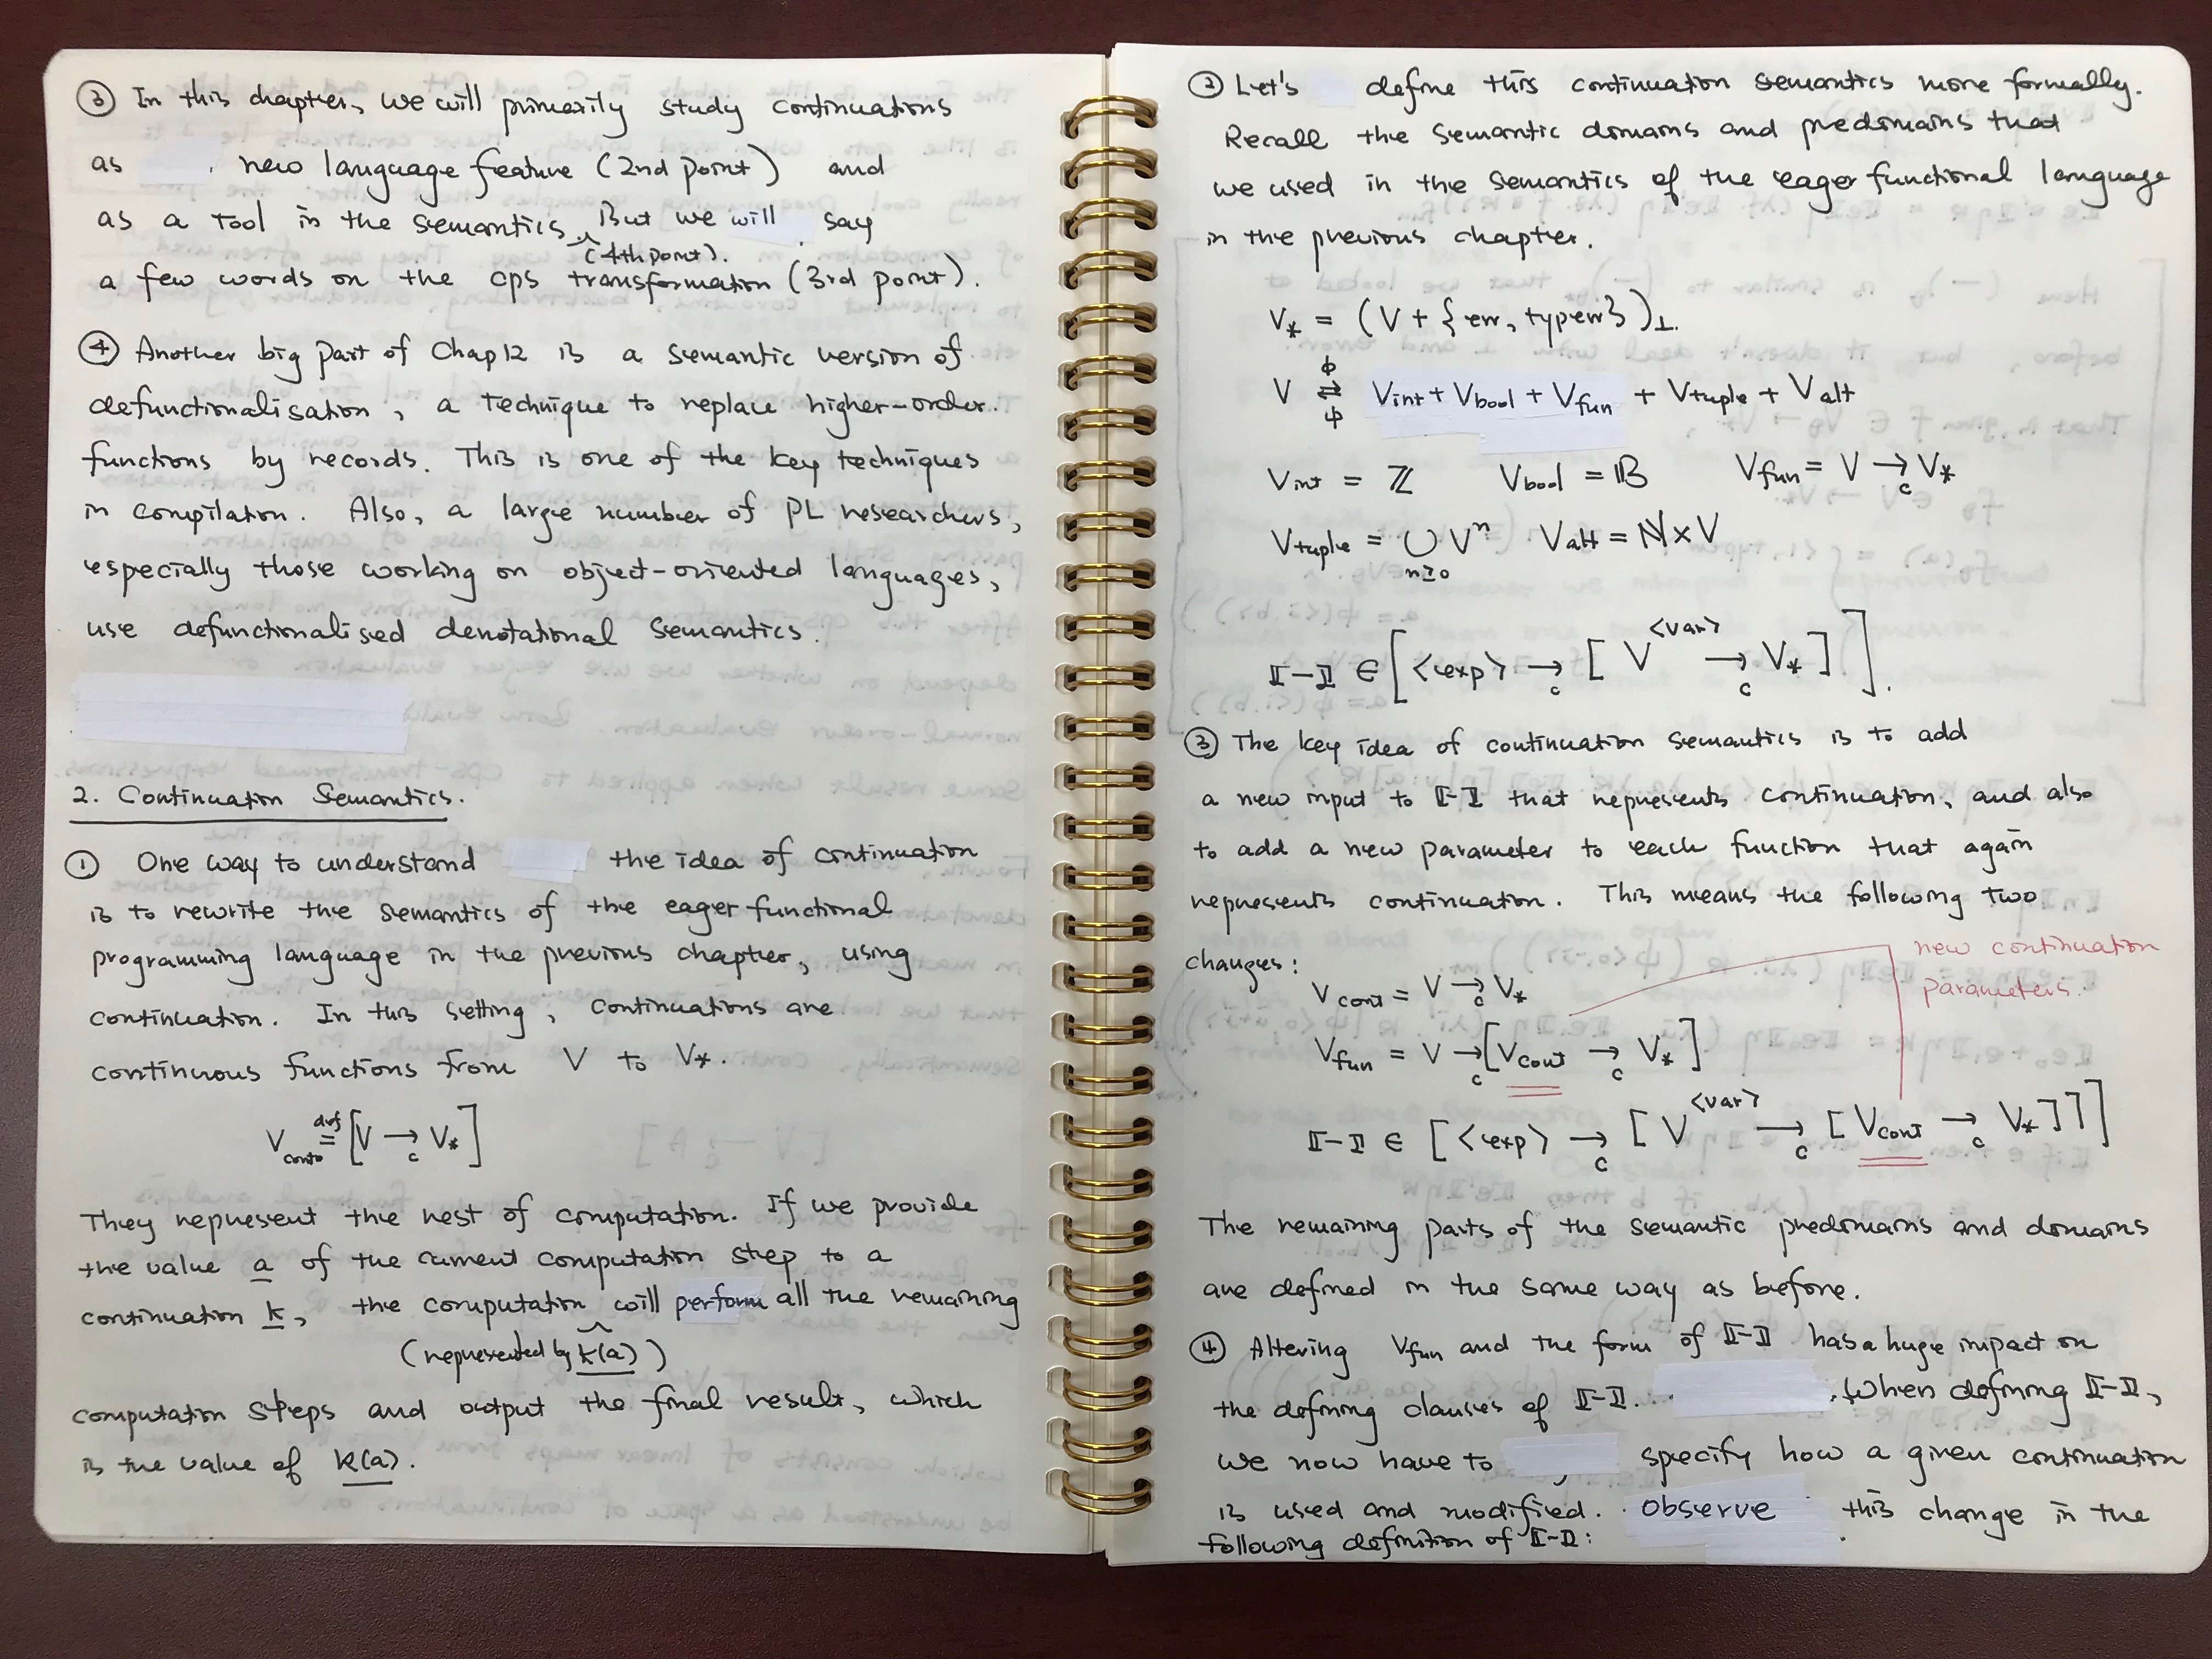 ③ In this chapter, we will primarily study continuations
as new language feature (2nd point) and
as a tool in the semantics. But we will say
(4th point).
a few words on the cps transformation (3rd point).
④ Another big part of Chap12 is a semantic version of
defunctionalisation, a technique to replace higher-order
functions by records. This is one of the key techniques
in compilation. Also, a large number of PL researchers,
especially those working on object-oriented languages,
use defunctionalised denotational semantics.
2. Continuation Semantics.
① One way to understand the idea of continuation
is to rewrite the semantics of the eager functional
programming language in the previous chapter, using
continuation. In this setting, continuations are
continuous functions from V to V*.
V_cont def= [V →_c V*]
They represent the rest of computation. If we provide
the value a of the current computation step to a
continuation k, the computation will perform all the remaining
(represented by k(a))
computation steps and output the final result, which
is the value of k(a).
② Let's define this continuation semantics more formally.
Recall the semantic domains and predomains that
we used in the semantics of the eager functional language
in the previous chapter.
V* = (V + {err, typerr})⊥.
V ⇄ V_int + V_bool + V_fun + V_tuple + V_alt
V_int = ℤ V_bool = 𝔹 V_fun = V →_c V*
V_tuple = ∪_{n≥0} V^n V_alt = ℕ × V
⟦-⟧ ∈ [<exp> →_c [V^<var> →_c V*]].
③ The key idea of continuation semantics is to add
a new input to ⟦-⟧ that represents continuation, and also
to add a new parameter to each function that again
represents continuation. This means the following two
changes:
new continuation
parameters.
V_cont = V →_c V*
V_fun = V →_c [V_cont →_c V*]
⟦-⟧ ∈ [<exp> →_c [V^<var> →_c [V_cont →_c V*]]]
The remaining parts of the semantic predomains and domains
are defined in the same way as before.
④ Altering V_fun and the form of ⟦-⟧ has a huge impact on
the defining clauses of ⟦-⟧. When defining ⟦-⟧,
we now have to specify how a given continuation
is used and modified. Observe this change in the
following definition of ⟦-⟧: